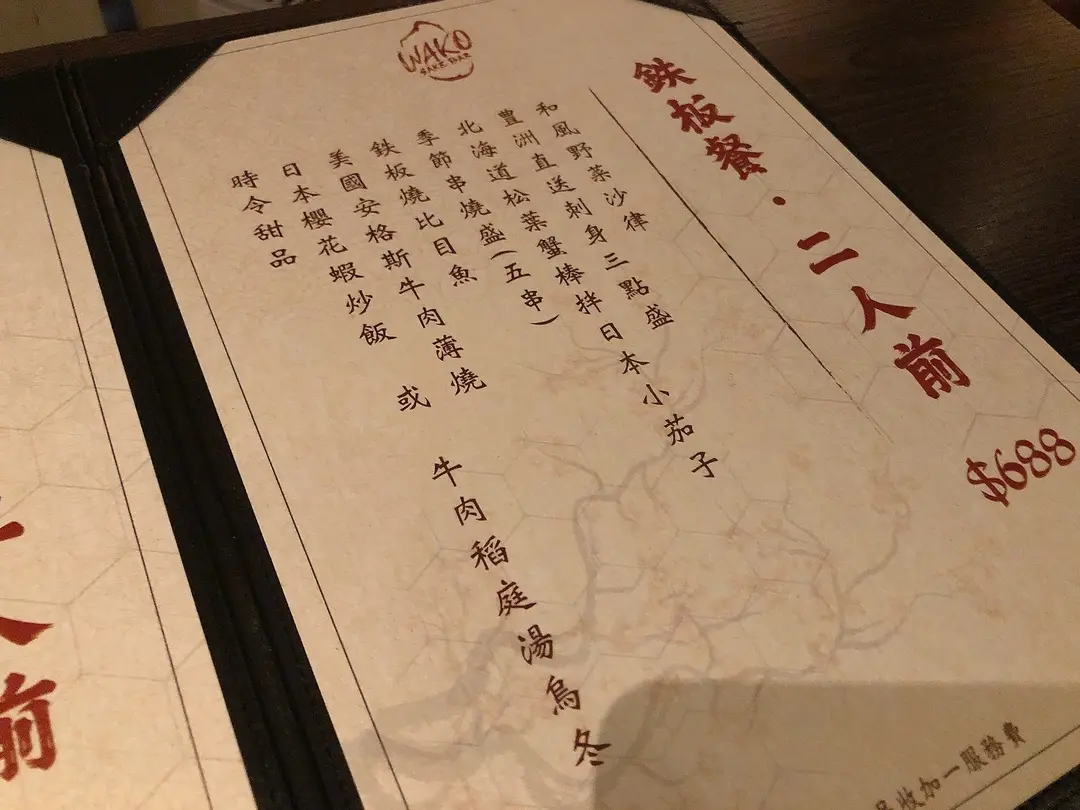 WAKO
SAKE BAR
鉄板餐·二人前
$688
和風野菜沙律
豊洲直送刺身三點盛
北海道松葉蟹棒拌日本小茄子
季節串燒盛(五串)
鉄板燒比目魚
美國安格斯牛肉薄燒
日本櫻花蝦炒飯 或 牛肉稻庭湯烏冬
時令甜品
收加一服務費
人前